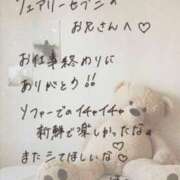 フェアリーセブンの
お兄さんへ♡
お仕事終わりに
ありがとう!!
ソファーでのイチャイチャ
新鮮で楽しかったな。
またシてほしいな♡